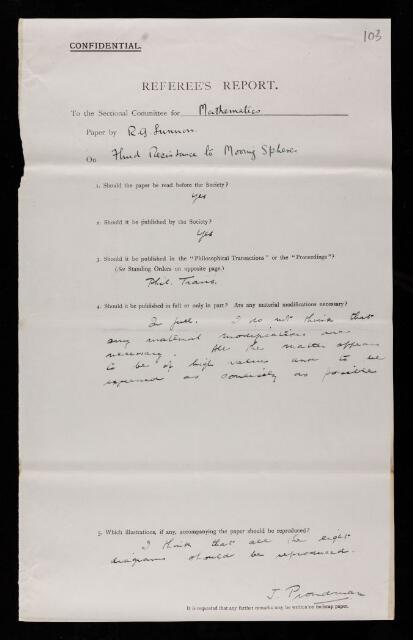 103
CONFIDENTIAL.
REFEREE'S REPORT.
To the Sectional Committee for Mathematics
Paper by R.G. Lunnon.
On Fluid Resistance to Moving Spheres
1. Should the paper be read before the Society?
Yes
2. Should it be published by the Society?
Yes
3. Should it be published in the "Philosophical Transactions" or the "Proceedings"?
(See Standing Orders on opposite page.)
Phil. Trans.
4. Should it be published in full or only in part? Are any material modifications necessary?
In full. I do not think that
any material modifications are
necessary. All the matter appears
to be of high value and to be
expressed as concisely as possible
5. Which illustrations, if any, accompanying the paper should be reproduced?
I think that all the eight
diagrams should be reproduced.
J. Proudman
It is requested that any further remarks may be written on foolscap paper.